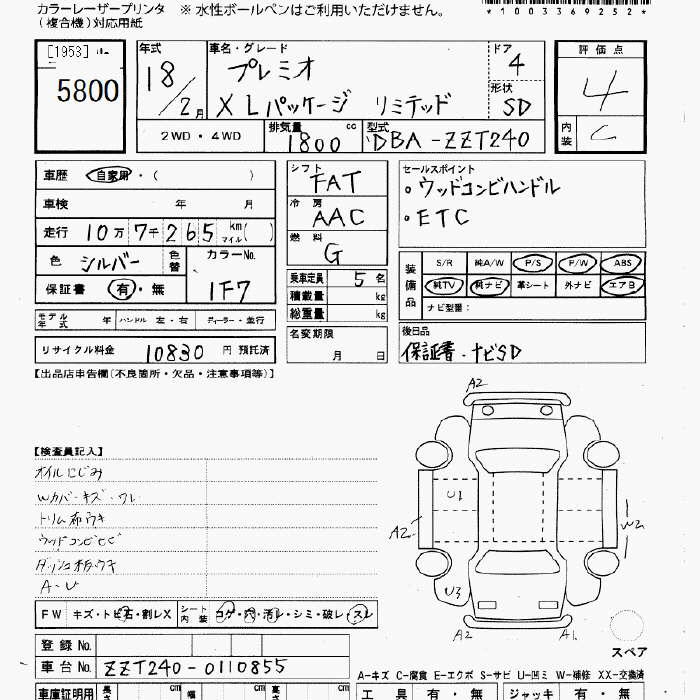 カラーレーザープリンタ ※ 水性ボールペンはご利用いただけません。
(複合機)対応用紙
*1003369252*
[1953] 年式 車名・グレード ドア 評価点
5800 18/2月 プレミオ 4 4
XLパッケージ リミテッド 形状 SD
2WD・4WD 排気量 1800 cc 型式 DBA-ZZT240 内装 C
車歴 自家用・( ) シフト FAT セールスポイント
車検 年 月 冷房 AAC 。ウッドコンビハンドル
走行 10万7千265km マイル( ) 燃料 G 。ETC
色 シルバー 色替 カラーNo. 1F7
保証書 有・無
乗車定員 5名
積載量 kg
総重量 kg
装備品 S/R 純A/W P/S P/W ABS
純TV 純ナビ 革シート 外ナビ エアB
ナビ型番:
モデル年式 年 ハンドル 左・右 ディーラー・並行
名変期限 月 日
後日品
保証書・ナビSD
リサイクル料金 10830 円 預託済
【出品店申告欄(不良箇所・欠品・注意事項等)】
A2
【検査員記入】
オイルにじみ
Wカバーキズ・ワレ
トリム布ウキ
ウッドコンビ
ダッシュ板ウキ
A-U
U1
A2
W2
U3
A2 A1
スペア
FW キズ・トビ石・割レX シート内装 コゲ・穴・汚レ・シミ・破レ・スレ
登録No.
車台No. ZZT240-0110855
A-キズ C-腐食 E-エクボ S-サビ U-凹ミ W-補修 XX-交換済
車庫証明用 長さ cm 幅 cm 高さ cm
工具 有・無 ジャッキ 有・無